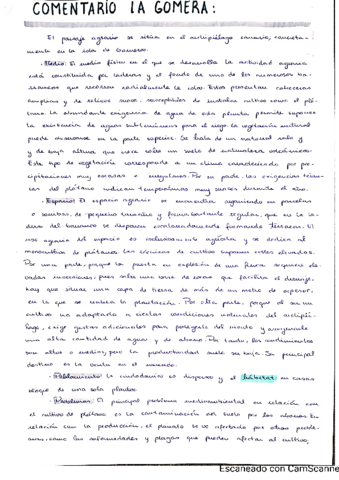 COMENTARIO LA GOMERA:
El paisaje agrario se sitúa en el archipiélago canario, concreta-
mente en la isla de
- Medio: El medio físico en el que se desarrolla la actividad agraria
está constituido por laderas y el fondo de uno de los numerosos ba-
rrancos que recorren radialmente la isla. Estos presentan cabeceras
amplias y de relieve suave, susceptibles de instalar cultivos como el plá-
tano. La abundante exigencia de agua de esta planta permite suponer
la existencia de aguas subterráneas para el riego. La vegetación natural
puede observarse en la parte superior. Se trata de un matorral
y de baja altura que cubre un suelo de naturaleza volcánica.
Este tipo de vegetación corresponde a un clima caracterizado por pre-
cipitaciones muy escasas e irregulares. Por su parte, las exigencias térmi-
cas del plátano indican temperaturas muy suaves durante el año.
- Espacio: El espacio agrario se encuentra
de pequeño tamaño y forma bastante regular, que en la la-
dera del barranco se disponen escalonadamente formando terrazas. El
uso agrario del espacio es exclusivamente agrícola y se dedica al
monocultivo de plátanos. Las técnicas de cultivo suponen costes elevados.
Por una parte, porque la puesta en explotación de una finca requiere ele-
vadas inversiones, pues sobre una base de rocas que facilita el drenaje
hay que situar una capa de tierra de más de un metro de espesor,
en la que se realiza la plantación. Por otra parte, porque al ser un
cultivo no adaptado a ciertas condiciones naturales del archipié-
lago, exige gastos adicionales para protegerlo del viento y
una alta cantidad de agua y de abono. Por tanto, los rendimientos
son altos o medios, pero la productividad suele ser baja. Su principal
destino es la venta en el mercado.
- Poblamiento: La ciudadanía es dispersa y el hábitat en casas
bloque de una sola planta.
- Problemas: El principal problema medioambiental en relación con
el cultivo de plátano es la contaminación del suelo por los abonos. En
relación con la producción, el plátano se ve afectado por otros proble-
mas, como las enfermedades y plagas que pueden afectar al cultivo,
Escaneado con CamScanne